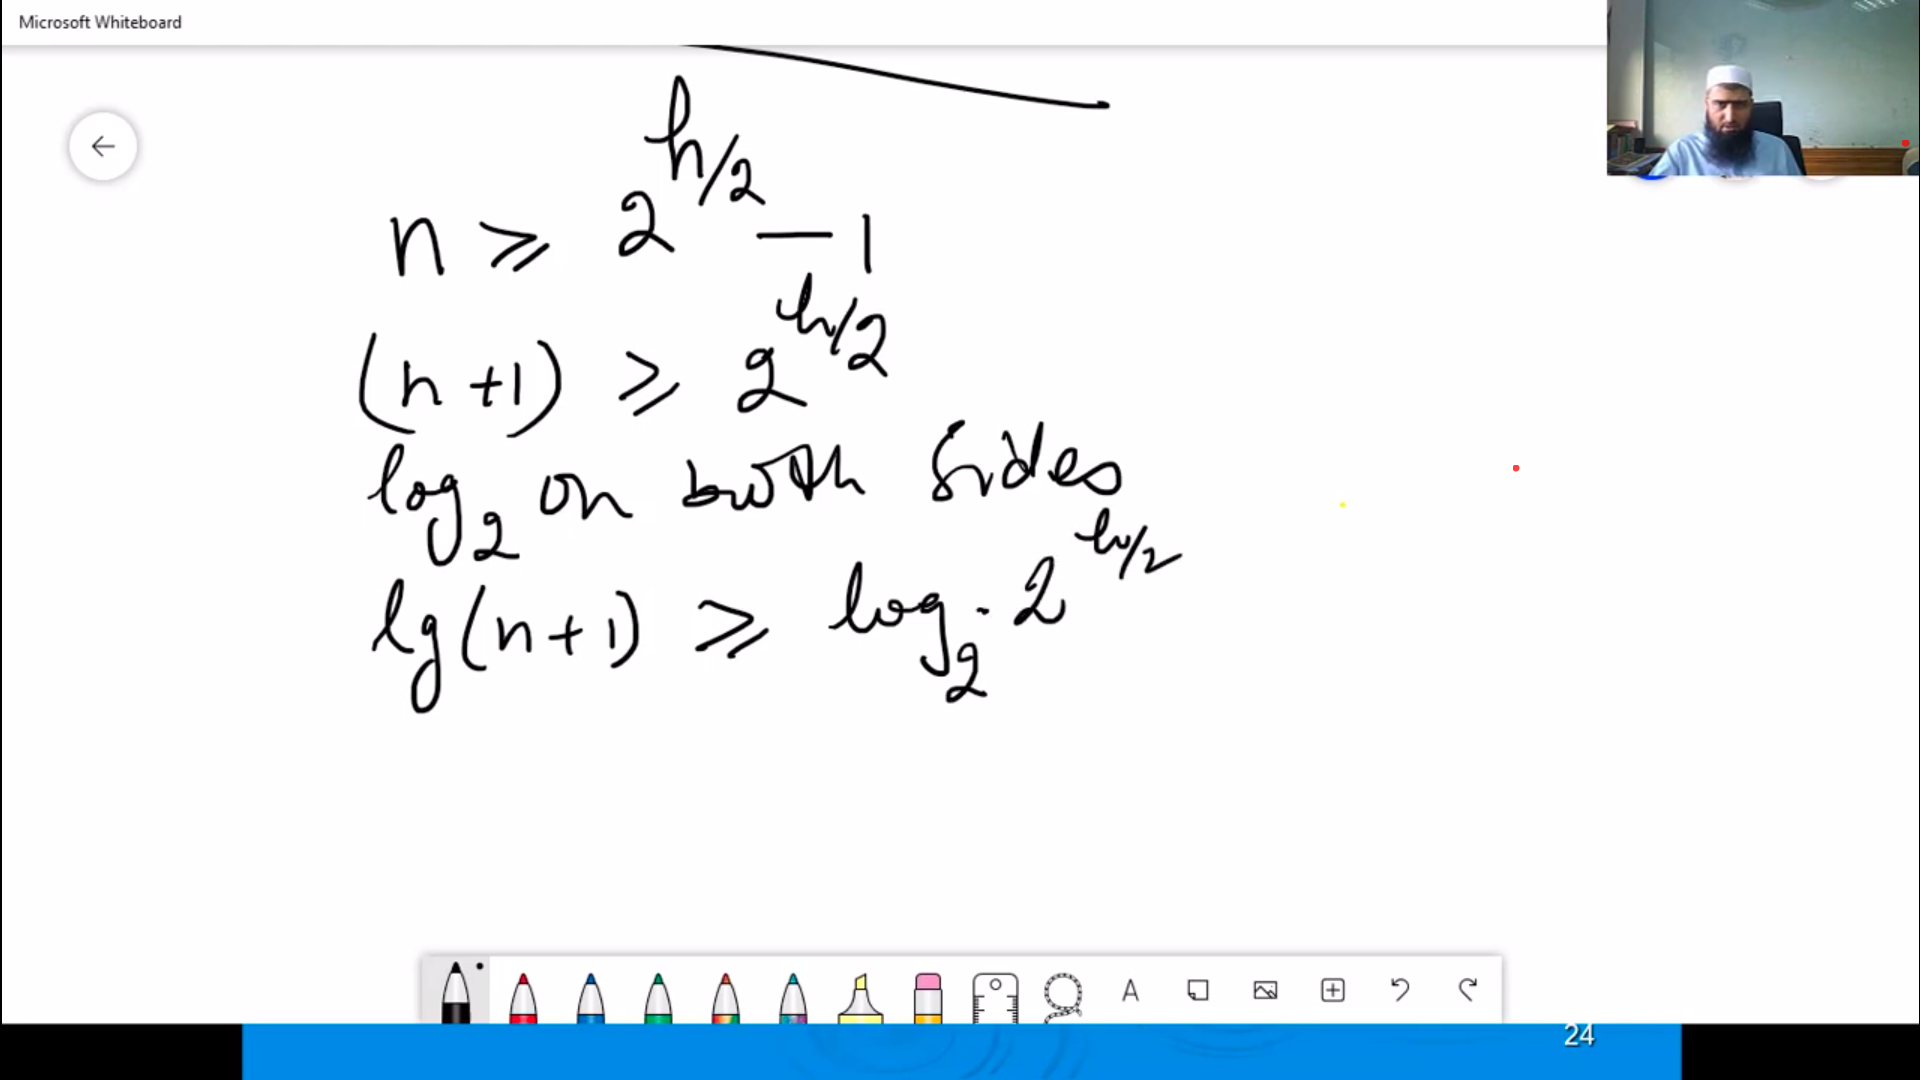 Microsoft Whiteboard
n ≥ 2^{h/2} - 1
(n+1) ≥ 2^{h/2}
log_2 on both sides
lg(n+1) ≥ log_2 . 2^{h/2}
A
24